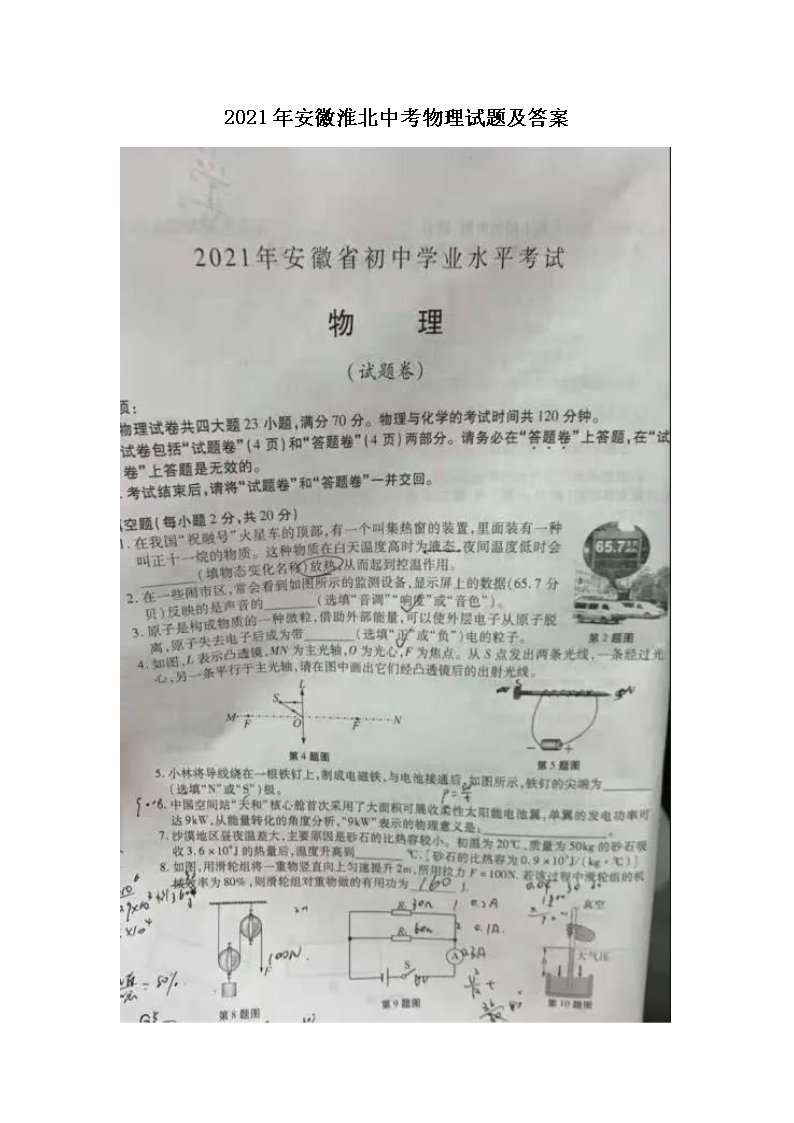 2021年安徽淮北中考物理试题及答案
2021年安徽省初中学业水平考试
物 理
(试题卷)
项:
物理试卷共四大题23小题,满分70分。物理与化学的考试时间共120分钟。
试卷包括“试题卷”(4页)和“答题卷”(4页)两部分。请务必在“答题卷”上答题,在“试
卷”上答题是无效的。
.考试结束后,请将“试题卷”和“答题卷”一并交回。
空题(每小题2分,共20分)
1.在我国“祝融号”火星车的顶部,有一个叫集热窗的装置,里面装有一种
叫正十一烷的物质。这种物质在白天温度高时为液态,夜间温度低时会
(填物态变化名称)放热,从而起到控温作用。
65.7
2.在一些闹市区,常会看到如图所示的监测设备,显示屏上的数据(65.7分
贝)反映的是声音的(选填“音调”“响度”或“音色”)。
3.原子是构成物质的一种微粒,借助外部能量,可以使外层电子从原子脱
离,原子失去电子后成为带(选填“正”或“负”)电的粒子。
第2题图
4.如图,L表示凸透镜,MN为主光轴,O为光心,F为焦点。从S点发出两条光线,一条经过光
心,另一条平行于主光轴,请在图中画出它们经凸透镜后的出射光线。
L
S
M F O F N
S N
- +
第4题图
第5题图
5.小林将导线绕在一根铁钉上,制成电磁铁,与电池接通后,如图所示,铁钉的尖端为
(选填“N”或“S”)极。
6.中国空间站“天和”核心舱首次采用了大面积可展收柔性太阳能电池翼,单翼的发电功率可
达9kW,从能量转化的角度分析,“9kW”表示的物理意义是:。
7.沙漠地区昼夜温差大,主要原因是砂石的比热容较小。初温为20℃、质量为50kg的砂石吸
收3.6×10⁵J的热量后,温度升高到℃。[砂石的比热容为0.9×10³J/(kg·℃)]
8.如图,用滑轮组将一重物竖直向上匀速提升2m,所用拉力F=100N。若该过程中滑轮组的机
械效率为80%,则滑轮组对重物做的有用功为 160 J.
R₁ 30Ω 0.2A
R₂ 60Ω 0.1A.
A 0.3A
S
100N.
F
真空
大气压
h
= 80%
第8题图
第9题图
第10题图